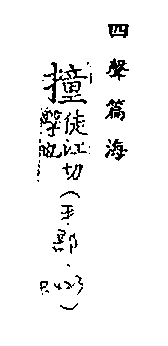 四聲篇海
撞徒江切
擊也
(手部.P.423)